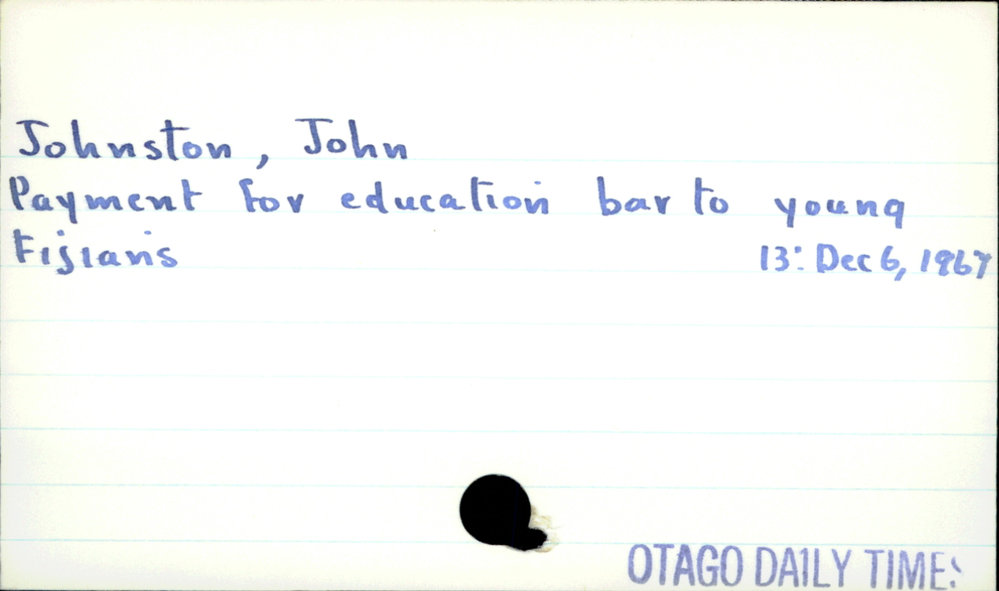 Johnston, John
Payment for education bar to young
Fijians 13: Dec 6, 1967
OTAGO DAILY TIMES